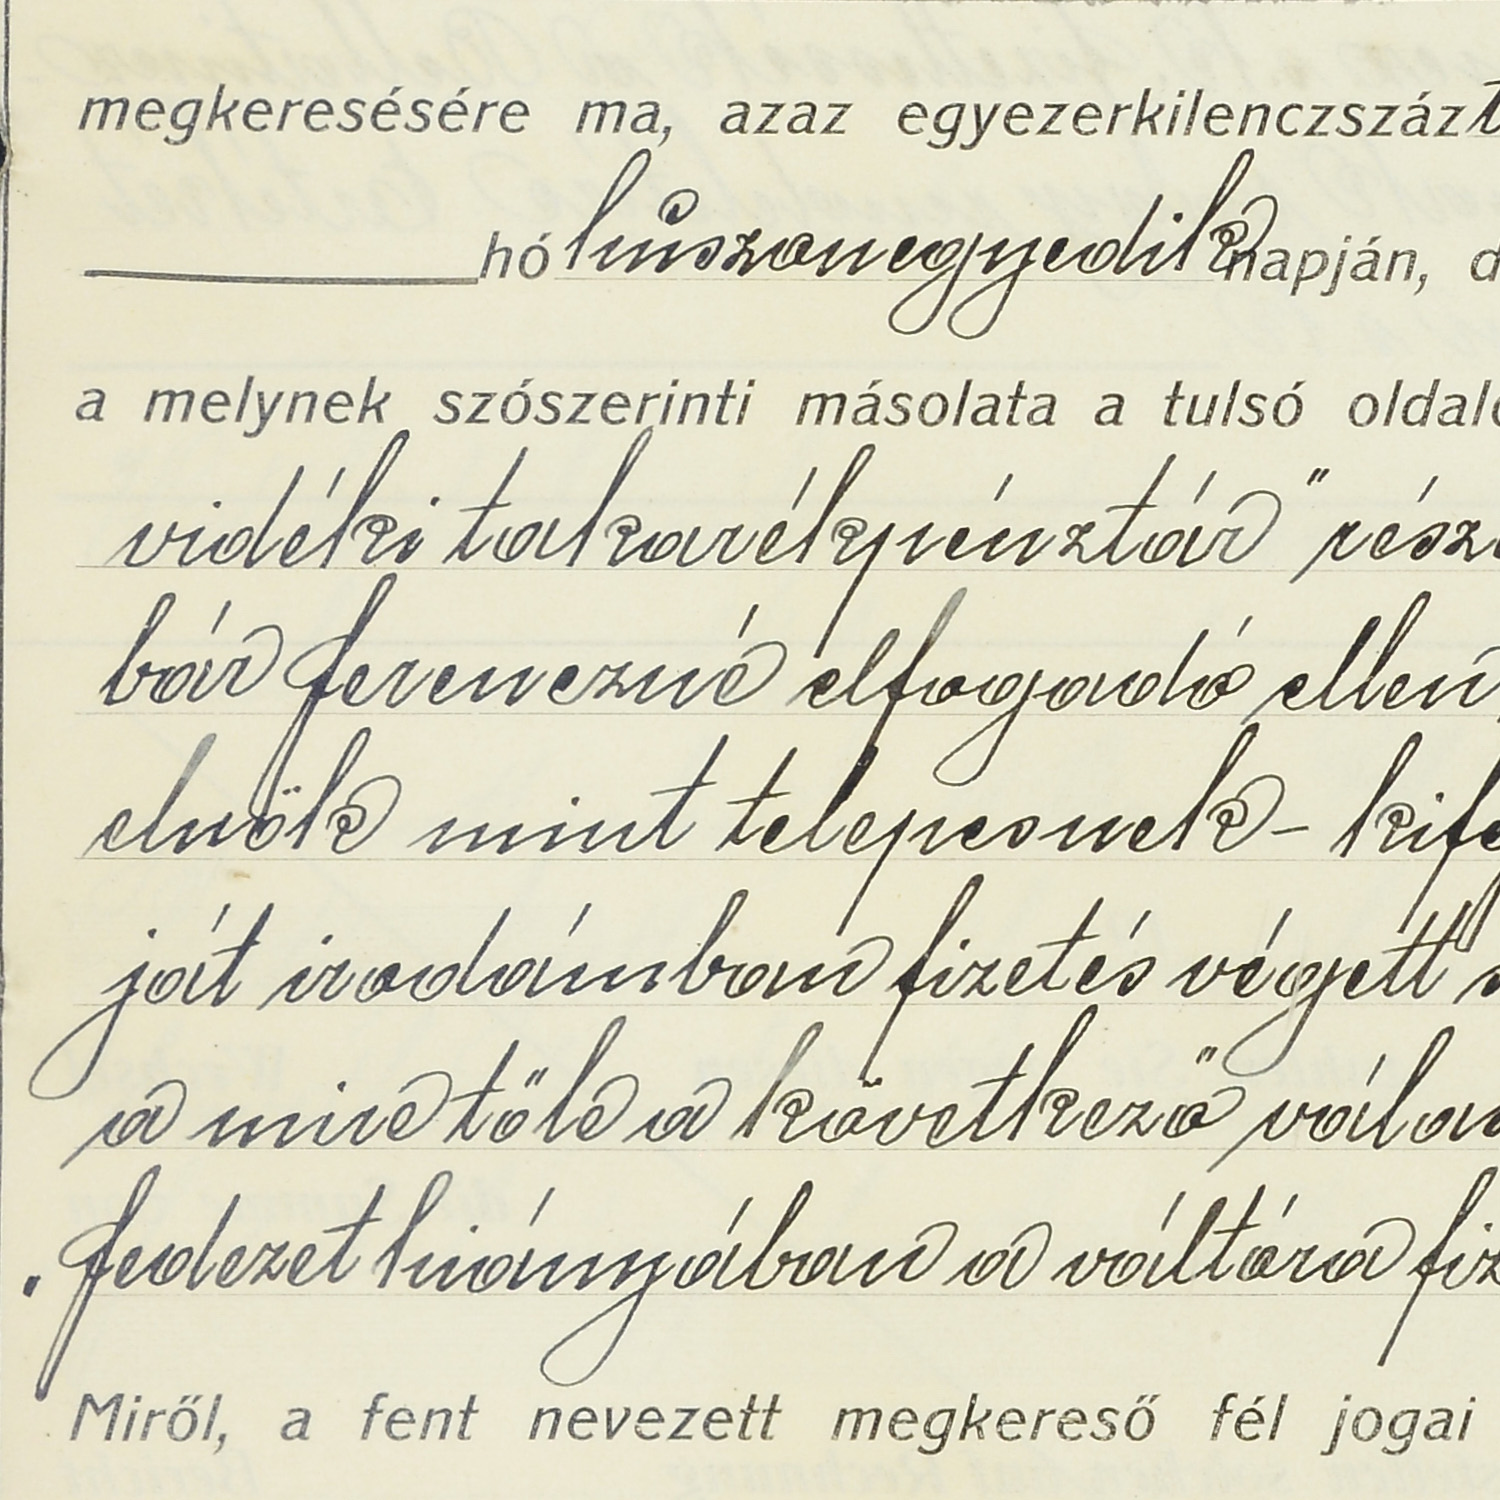 megkeresésére ma, azaz egyezerkilenczszázt
hó huszonegyedik napján, d
a melynek szószerinti másolata a tulsó oldal
vidéki takarékpénztár" rész
bár Ferenczné elfogadó ellen
elnök mint telepesnek - kif
ját irodámban fizetés végett
a mire tőle a következő vála
„Fedezet hiányában a váltóra fiz
Miről, a fent nevezett megkereső fél jogai